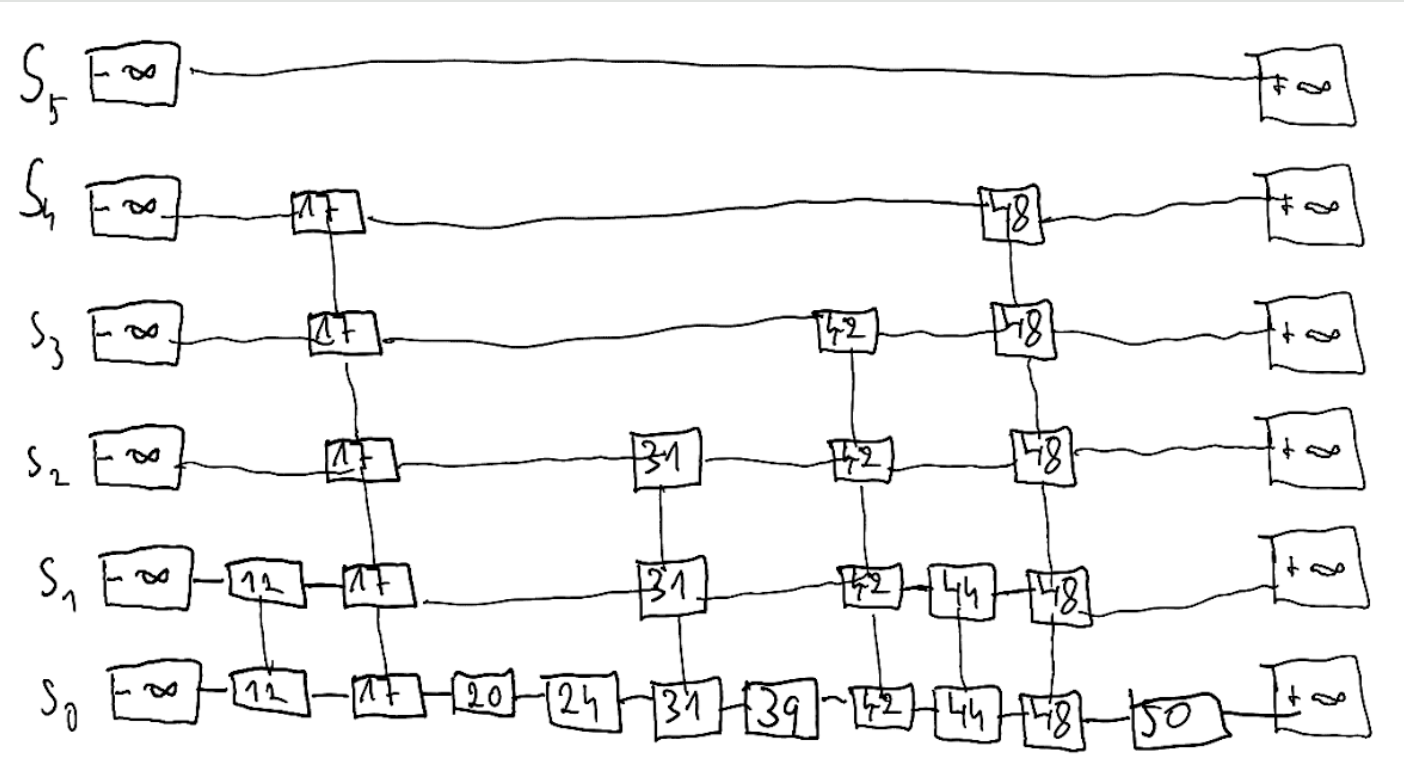 S5 -∞ +∞
S4 -∞ 17 48 +∞
S3 -∞ 17 42 48 +∞
S2 -∞ 17 31 42 48 +∞
S1 -∞ 12 17 31 42 44 48 +∞
S0 -∞ 12 17 20 24 31 39 42 44 48 50 +∞